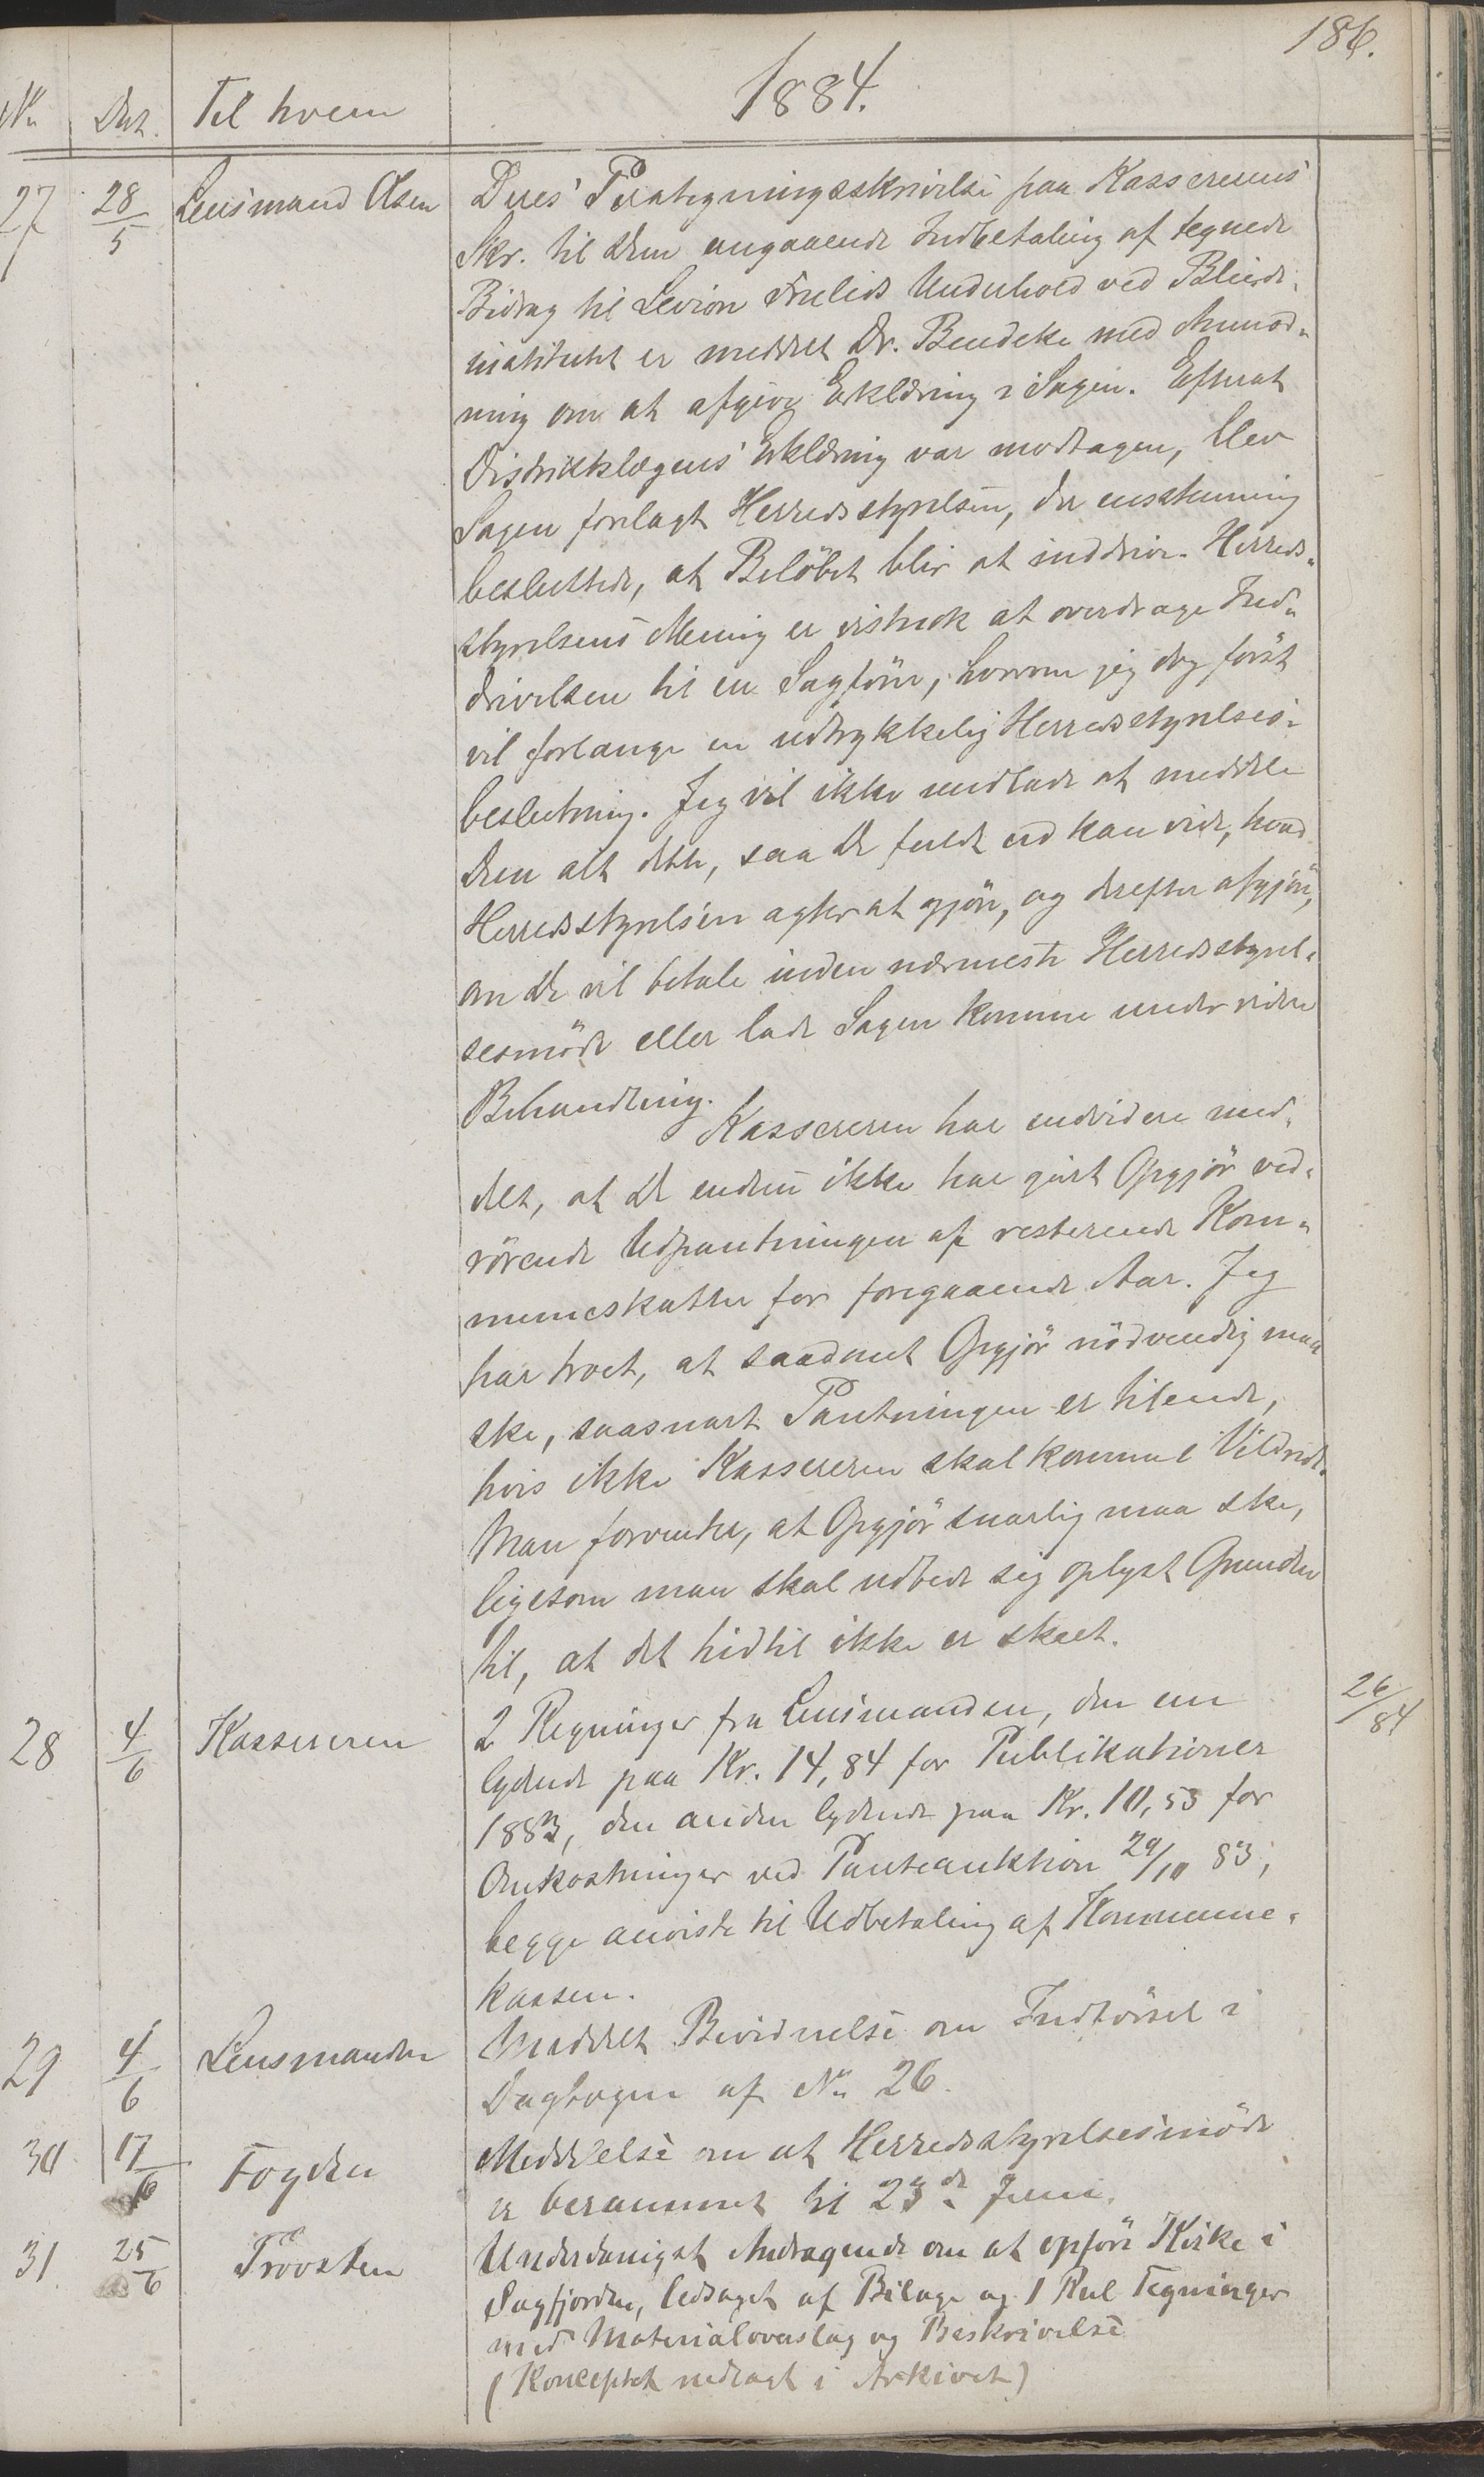 186.
1884.
No Dat. Til hvem
27 28/5 Lensmand Olsen Deres Paategningsskrivelse paa Kassererens
Skr. til Dem angaaende Indbetaling af tegnede
Bidrag til Levion Urelids Underhold ved Blinde-
institutet er meddelt Dr. Bendeke med Anmod-
ning om at afgive Erklæring i Sagen. Efterat
Distriktslægens Erklæring var modtagen, blev
Sagen forelagt Herredsstyrelsen, der enstemmig
besluttede, at Beløbet blir at inddrive. Herreds-
styrelsens Mening er vistnok at overdrage Ind-
drivelsen til en Sagfører, hvorom jeg dog först
vil forlange en udtrykkelig Herredsstyrelses-
beslutning. Jeg vil ikke undlade at meddele
Dem alt dette, saa De fuldt ud kan vide, hvad
Herredsstyrelsen agter at gjöre, og derefter afgjöre,
om De vil betale inden nærmeste Herredsstyrel-
sesmöde eller lade Sagen komme under videre
Behandling.
Kassereren har endvidere med-
delt, at De endnu ikke har gjort Opgjör ved-
rörende Udpantningen af resterende Kom-
muneskatter for foregaaende Aar. Jeg
har troet, at saadant Opgjör nödvendig maa
ske, saasnart Pantningen er tilende,
hvis ikke Kassereren skal komme i Vildrede.
Man forventer, at Opgjör snarlig maa ske,
ligesom man skal udbede sig oplyst Grunden
til, at det hidtil ikke er skeet.
28 4/6 Kassereren 2 Regninger fra Lensmanden, den ene 26/84
lydende paa Kr. 14,84 for Publikationer
1883, den anden lydende paa Kr. 10,53 for
Omkostninger ved Panteauktion 29/10 83,
begge anviste til Udbetaling af Kommune-
kassen.
29 4/6 Lensmanden Meddelt Bevidnelse om Indförsel i
Dagbogen af No 26.
30 17/6 Fogden Meddelelse om at Herredsstyrelsesmöde
er berammet til 23de Juni.
31 25/6 Provsten Underdanigst Andragende om at opföre Kirke i
Sagfjorden, ledsaget af Bilage og 1 Rul Tegninger
med Materialoverslag og Beskrivelse
(Konceptet nedlagt i Arkivet)